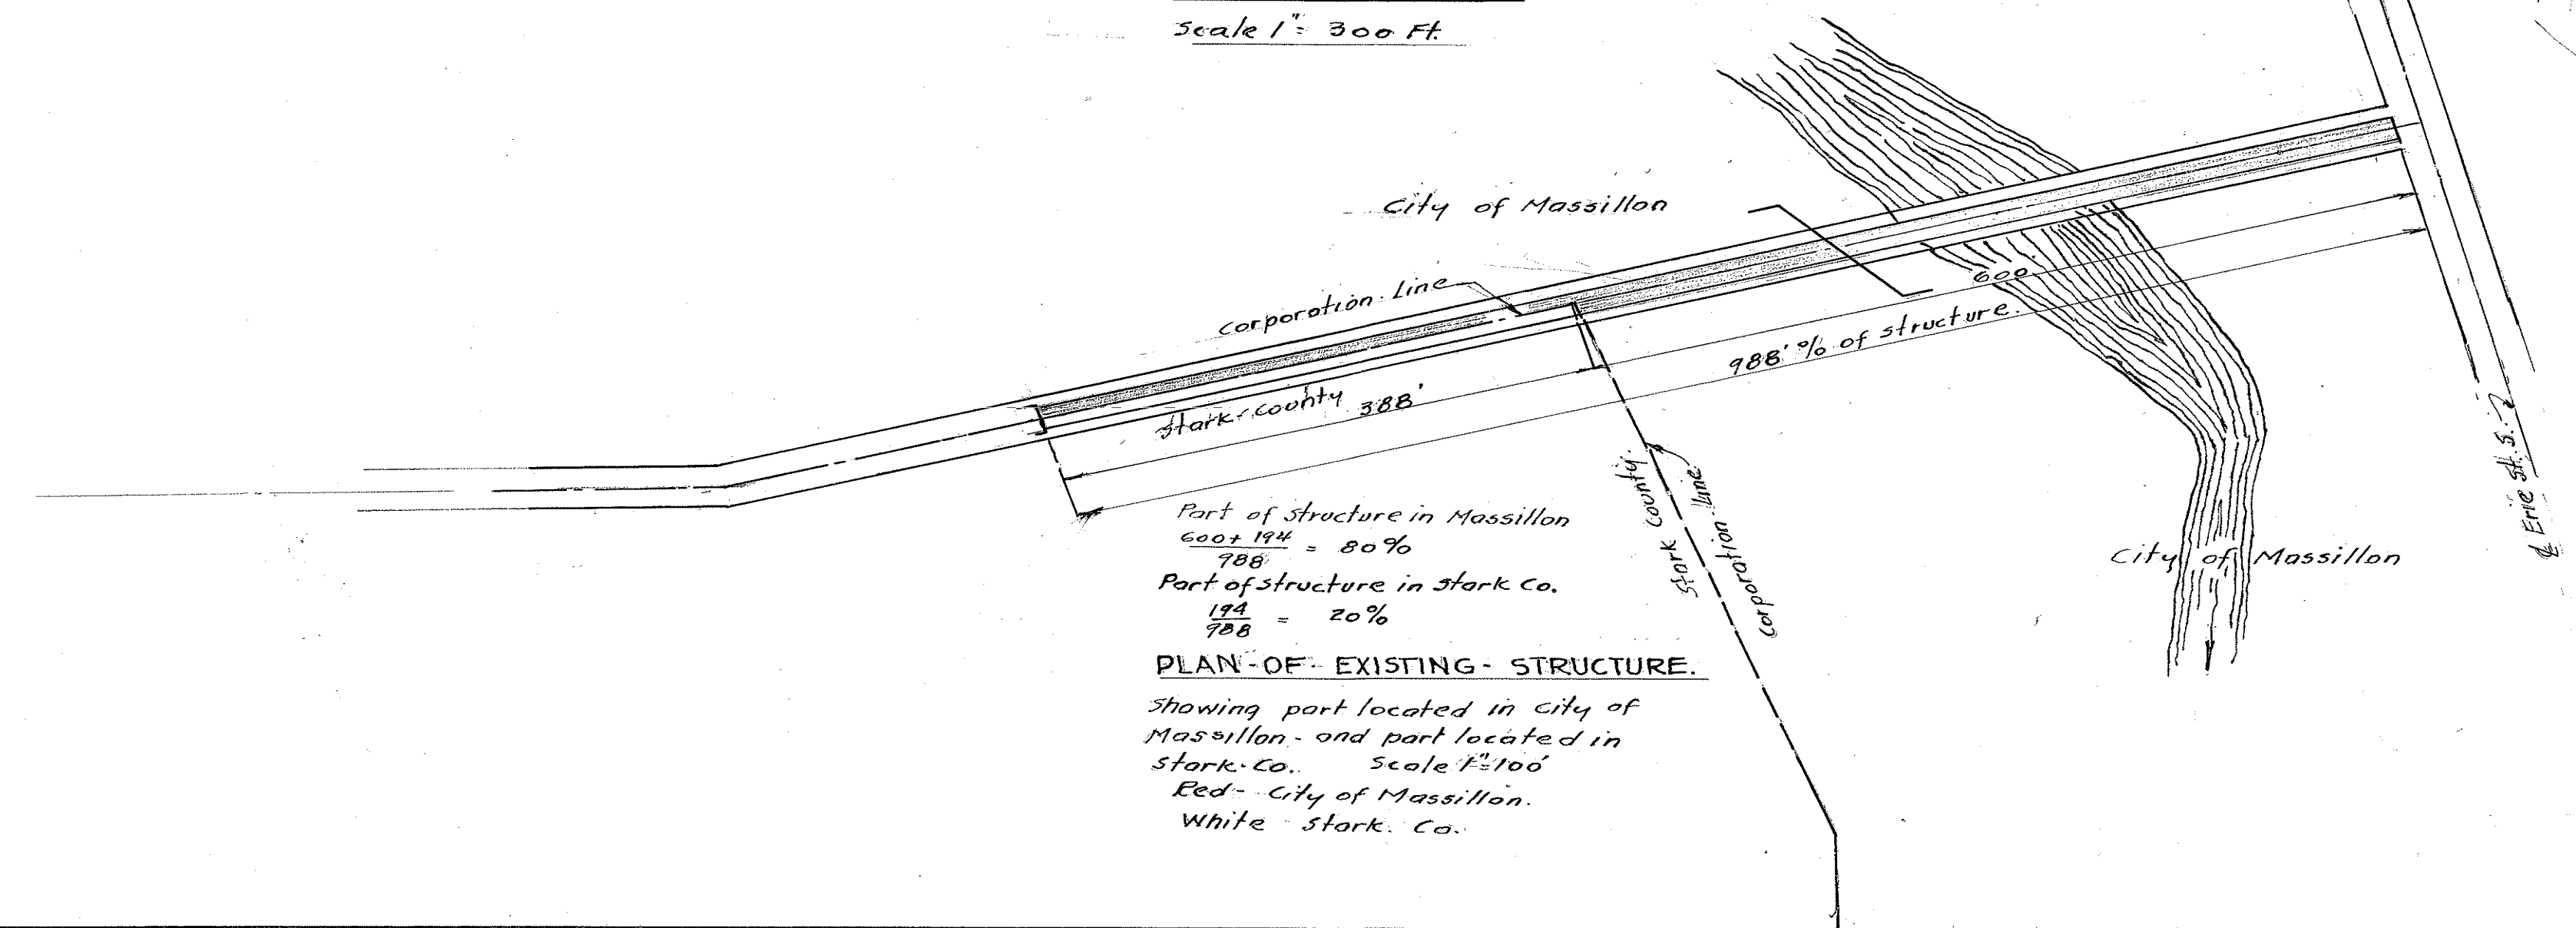 Scale 1" = 300 Ft.
City of Massillon
Corporation Line
600
988' % of structure.
Stark County 388'
Stark County.
Corporation Line
Part of Structure in Massillon
600 + 194
988
= 80%
Part of structure in Stark Co.
194
988
= 20%
PLAN-OF-EXISTING-STRUCTURE.
Showing part located in City of
Massillon - and part located in
Stark. Co. Scale 1"=100'
Red - City of Massillon.
White Stark. Co.
City of Massillon
℄ Erie St. S.